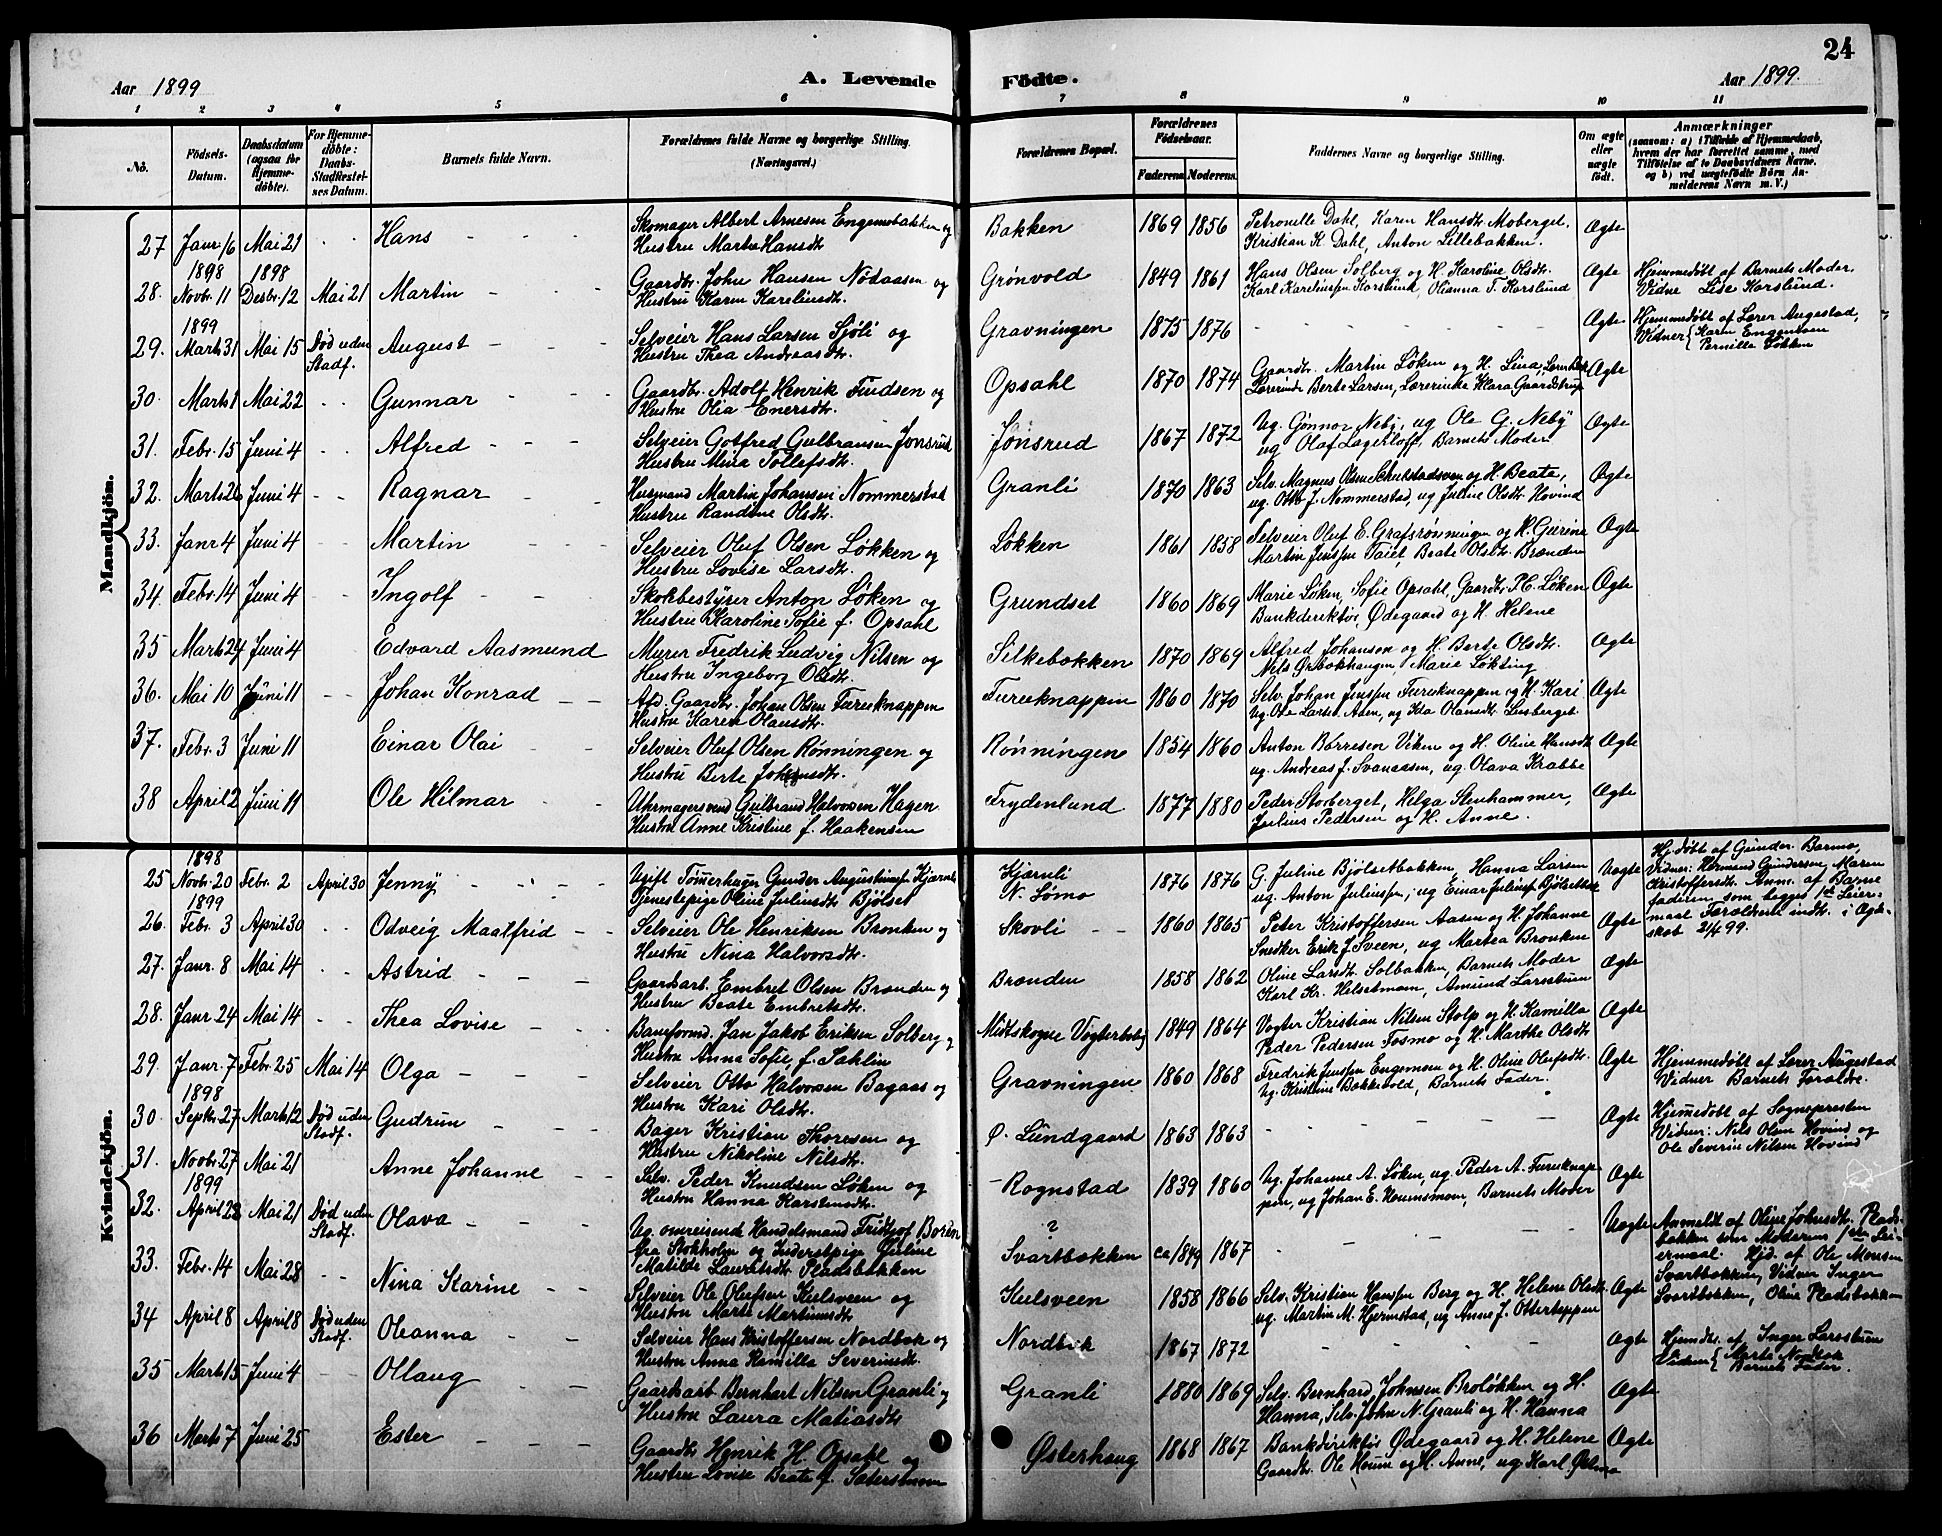 24
Aar 1899 A. Levende Födte. Aar 1899.
1 2 3 4 5 6 7 8 9 10 11
No.
Födsels-
Datum.
Daabsdatum
(ogsaa för
Hjemme-
döbte).
For Hjemme-
döbte:
Daabs-
Stadfæstel-
ses Datum.
Barnets fulde Navn.
Forældrenes fulde Navne og borgerlige Stilling.
(Næringsvei.)
Forældrenes Bopæl.
Forældrenes
Födselsaar.
Faderens. Moderens.
Faddernes Navne og borgerlige Stilling.
Om ægte
eller
uægte
födt.
Anmærkninger
(saasom: a) i Tilfælde af Hjemmedaab,
hvem der har forrettet samme, med
Tilföielse af to Daabsvidners Navne,
og b) ved uægtefödte Börn An-
melderens Navn m. V.)
Mandkjön.
27 Janr. 16 Mai 21 Hans
Skomager Albert Arnesen Engemobakken og
Hustru Marthe Hansdt.
Bakken 1869 1856
Petronelle Dahl, Karen Hansdt. Moberget,
Kristian K. Dahl, Anton Lillebakken.
Ægte
1898 1898
28. Novbr. 11 Desbr. 12 Mai 21 Martin
Gaardbr. John Hansen Nödaasen og
Hustru Karen Kareliusdt.
Grönvold 1849 1861
Hans Olsen Solberg og H. Karoline Olsdt.
Karl Kareliussen Korslund, Olianna T. Korslund
Ægte
Hjemmedöbt af Barnets Moder.
Vidne Lise Korslund.
1899
29. Marts 31 Mai 15 Död uden
Stadf.
August
Selveier Hans Larsen Sjöli og
Hustru Thea Andreasdt.
Gravningen 1875 1876
Ægte
Hjemmedöbt af Lærer Augestad,
Vidner { Karen Engemoen
Pernille Lökken
30. Marts 1 Mai 22 Gunnar
Gaardbr. Adolf Henrik Findsen og
Hustru Olia Enersdt.
Opsahl 1870 1874
Gaardbr. Martin Löken og H. Lina,
Lærerinde Berte Larsen, Lærerinde Klara Gaardstrup
Ægte
31. Febr. 15 Juni 4 Alfred
Selveier Gotfred Gulbransen Jonsrud
Hustru Mina Tollefsdt.
Jönsrud 1867 1872
Ug. Gönnor Neby, ug Ole G. Neby
ug Olaf Lagerloff, Barnets Moder
Ægte
32. Marts 26 Juni 4 Ragnar
Husmand Martin Johansen Nommerstad
Hustru Randine Olsdt.
Granli 1870 1863
Selv. Magnus Olsen og H. Beate,
ug. Otto J. Nommerstad, ug Juline Olsdt. Hovind
Ægte
33. Janr. 4 Juni 4 Martin
Selveier Oluf Olsen Lökken og
Hustru Lovise Larsdt.
Lökken 1861 1858
Selveier Oluf E. Grafsrönningen og H. Gurine
Martin Jenssen Taiet, Beate Olsdt. Brænden
Ægte
34. Febr. 14 Juni 4 Ingolf
Skokbestyrer Anton Löken og
Hustru Karoline Sofie f. Opsahl
Grundset 1860 1869
Marie Löken, Sofie Opsahl, Gaardbr. P.C. Löken
Bankdirektör Ödegaard og H. Helene
Ægte
35 Marts 24 Juni 4 Edvard Aasmund
Murer Fredrik Ludvig Nilsen og
Hustru Ingeborg Olsdt.
Silkebakken 1870 1869
Alfred Johansen og H. Berte Olsdt.
Nils Grebokhaugen, Marie Lökting
Ægte
36. Mai 10 Juni 11 Johan Konrad
Afd. Gaardbr. Johan Olsen Furuknappen
Hustru Karen Olausdt.
Furuknappen 1860 1870
Selv. Johan Jenssen Furuknappen og H. Kari
Ug. Ole Larsen Aasen, ug Ida Olausdt. Lusberget.
Ægte
37. Febr. 3 Juni 11 Einar Olai
Selveier Oluf Olsen Rönningen og
Hustru Berte Johansdt.
Rönningen 1854 1860
Anton Börresen Viken og H. Oline Hansdt.
ug. Andreas J. Svenaasen, ug. Olava Krabbe
Ægte
38 April 2 Juni 11 Ole Hilmar
Uhrmagersvend Gulbrand Halvorsen Hagen
Hustru Anne Kristine f. Haakensen
Frydenlund 1877 1880
Peder Storberget, Helga Stenhammer,
Julius Pedersen og H. Anne.
Ægte
Kvindekjön.
1898
25 Novbr. 20 Febr. 2 April 30 Jenny
Ugift Tömmerhugger Gunder Augustinussen Kjærnli
Tjenestepige Oline Juliusdt. Bjölset
Kjærnli
N. Lömo
1876 1876
G. Juline Bjölsetbakken, Hanna Larsen
ug. Anton Juliussen, ug Einar Juliussen Bjölsetbak
Uægte
Hj.döbt af Gunder Barmo,
Vidner: Hermand Gundersen, Maren
Kristoffersdt. Anm. af Barne
faderen, som begges 1ste Leier-
maal. Forældrene indtr. i Ægte-
skab 21/4 99.
1899
26. Febr. 3 April 30 Odveig Maalfrid
Selveier Ole Henriksen Bronken og
Hustru Nina Halvorsdt.
Skovli 1860 1865
Peter Kristoffersen Aasen og H. Johanne
Snedker Erik J. Sveen, ug Martea Bronken
Ægte
27. Janr. 8 Mai 14 Astrid
Gaardarb. Embret Olsen Brænden og
Hustru Beate Embretsdt.
Brænden 1858 1862
Oline Larsdt. Solbakken, Barnets Moder
Karl Kr. Helsetmoen, Amund Larsstuen
Ægte
28. Janr. 24 Mai 14 Thea Lovise
Baneformd. Jan Jakob Eriksen Solberg og
Hustru Anna Sofie, f. Sahlin
Midtskogne Vogterbolig 1849 1864
Vogter Kristian Nilsen Stolp og H. Kamilla
Peder Pedersen Fosmo og H. Marthe Olsdt.
Ægte
29. Janr. 7 Febr. 25 Mai 14 Olga
Selveier Otto Halvorsen Bagaas og
Hustru Kari Olsdt.
Gravningen 1860 1868
Fredrik Jenssen Engemoen og H. Oline Olufsdt.
Ug. Kristine Bakkevold, Barnets Fader.
Ægte
Hjemmedöbt af Lærer Augestad
Vidner Barnets Forældre.
1898
30. Septbr. 27 Marts 12 Död uden
Stadf.
Gudrun
Bager Kristian Thoresen og
Hustru Nikoline Nilsdt.
Ö. Lundgaard 1863 1863
Ægte
Hjemmedöbt af Sognepresten
Vidner: Nils Olsen Hovind og
Ole Severin Nilsen Hovind
31. Novbr. 27 Mai 21 Anne Johanne
Selv. Peder Knudsen Löken og
Hustru Hanna Karstensdt.
Rognstad 1839 1860
Ug. Johanne A. Löken, ug. Peder A. Furuknap
pen, ug Johan E. Hommsmoen, Barnets Moder
Ægte
1899
32. April 23 Mai 21 Död uden
Stadf.
Olava
Ug. omreisende Handelsmand Fridtjof Boren
fra Stokholm og Inderstpige Juline
Matilde Lauritsdt. Pladsbakken
?
Svartbakken ca 1849 1867
Uægte
Anmeldt af Oline Johnsdt. Plads-
bakken som Moderens 1ste Lei-
ermaal. Hjd. af Ole Monsen
Svartbakken, Vidner Inger
Svartbakken, Oline Pladsbakken
33. Febr. 14 Mai 28 Nina Karine
Selveier Ole Olufsen Kulsveen og
Hustru Marte Martinusdt.
Kulsveen 1858 1866
Selv. Kristian Hanssen Berg og H. Helene Olsdt.
ug. Martin M. Hjernstad, ug Anne J. Otterteppen
Ægte
34 April 8 April 8 Död uden
Stadf.
Oleanna
Selveier Hans Kristoffersen Nordbak og
Hustru Anna Kamilla Severinsdt.
Nordbak 1867 1872
Ægte
Hjemdt. af Inger Larsstuen
Vidner { Marte Nordbak
Barnets Fader.
35 Marts 15 Juni 4 Ollaug
Gaardsarb. Bernhart Nilsen Granli og
Hustru Laura Matiasdt.
Granli 1880 1869
Selv. Bernhard Johnsen Brolökken og H.
Hanna, Selv. John N. Granli og H. Hanna
Ægte
36 Marts 7 Juni 25 Ester
Gaardbr. Henrik H. Opsahl og
Hustru Lovise Beate f. Sætersmoen
Österhaug 1868 1867
Bankdirektör Ödegaard og H. Helene
Gaardbr. Ole Houm og H. Anne, ug Karl
Ægte